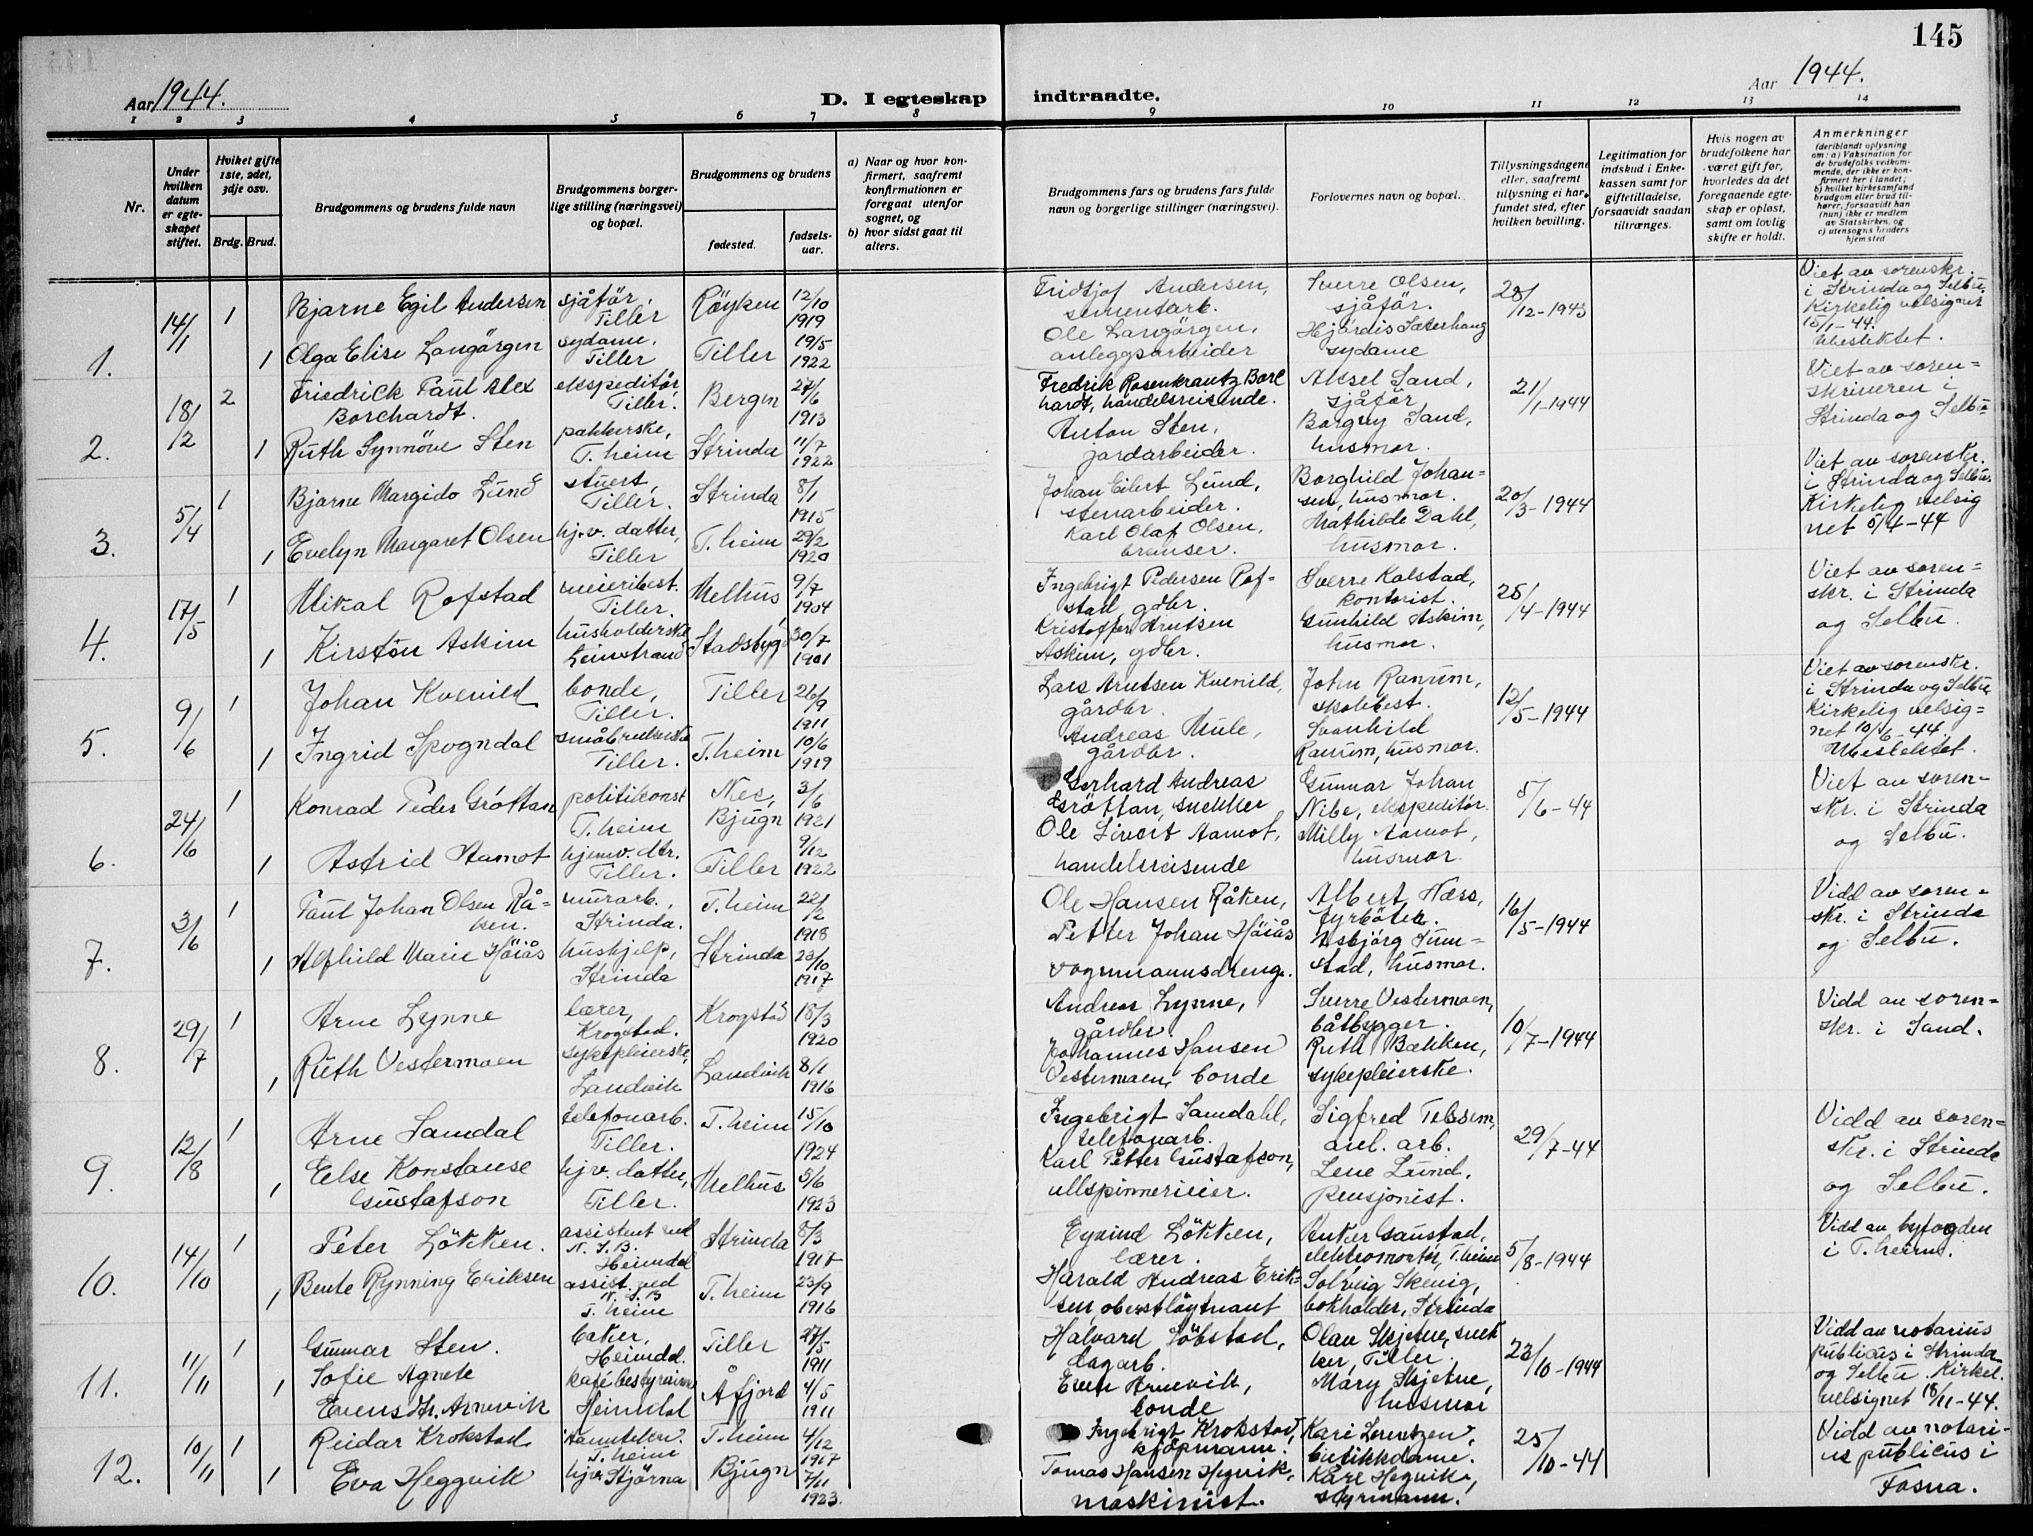 145
Aar 1944.
D. I egteskap
indtraadte.
Aar 1944.
1 2 3 4 5 6 7 8
9 10 11 12 13 14
Nr.
Under hvilken datum er egteskapet stiftet.
Hvilket gifte 1ste, 2det, 3dje osv.
Brdg. Brud.
Brudgommens og brudens fulde navn
Brudgommens borgerlige stilling (næringsvei) og bopæl.
Brudgommens og brudens
fødested.
fødselsaar.
a) Naar og hvor konfirmert, saafremt konfirmationen er foregaat utenfor sognet, og
b) hvor sidst gaat til alters.
Brudgommens fars og brudens fars fulde navn og borgerlige stillinger (næringsvei).
Forlovernes navn og bopæl.
Tillysningsdagene eller, saafremt tillysning ei har fundet sted, efter hvilken bevilling.
Legitimation for indskud i Enkekassen samt for giftetilladelse, forsaavidt saadan tiltrænges.
Hvis nogen av brudefolkene har været gift før, hvorledes da det foregaaende egteskap er opløst, samt om lovlig skifte er holdt.
Anmerkninger
(deriblandt oplysning om: a) Vaksination for de brudefolks vedkommende, der ikke er konfirmert her i landet; b) hvilket kirkesamfund brudgom eller brud tilhører, forsaavidt han (hun) ikke er medlem av Statskirken, og c) utensogns bruders hjemsted
1. 14/1 1 Bjarne Egil Andersen sjåför, Tiller Röyken 12/10 1919
1 Olga Elise Langörgen sydame, Tiller Tiller 19/5 1922
Fridtjof Andersen, sementarb.
Ole Langörgen, anleggsarbeider
Sverre Olsen, sjåför.
Hjördis Sæterhaug sydame
28/12-1943
Viet av sorenskr. i Strinda og Selbu. Kirkelig velsignet 15/1-44.
2. 18/2 2 Friedrick Paul Alex Borchardt. ekspeditör, Tiller. Bergen 27/6 1913
1 Ruth Synnöve Sten pakkerske, T.heim Strinda 11/7 1922
Fredrik Rosenkrantz Borchardt, handelsreisende.
Anton Sten, jordarbeider.
Aksel Sand, sjåför
Borgny Sand, husmor.
21/1-1944
Viet av sorenskriveren i Strinda og Selbu
3. 5/4 1 Bjarne Margido Lund stuert, Tiller. Strinda 8/1 1915
1 Evelyn Margaret Olsen hjv. datter, Tiller T.heim 29/2 1920
Johan Eilert Lund, stenarbeider.
Karl Olaf Olsen, bremser.
Borghild Johansen, husmor.
Mathilde Dahl, husmor.
20/3-1944
Viet av sorenskr. i Strinda og Selbu. Kirkelig velsignet 5/4-44
4. 17/5 1 Mikal Rofstad meieribest. Tiller. Melhus 9/7 1904
1 Kirstin Askim husholderske Leinstrand Stadsbygd 30/7 1901
Ingebrigt Pedersen Rofstad, gdbr.
Kristoffer Arntsen Askim, gdbr.
Sverre Kalstad, kontorist.
Gunhild Askim, husmor.
28/4-1944
Viet av sorenskr. i Strinda og Selbu.
5. 9/6 1 Johan Kvenild bonde, Tiller. Tiller 26/9 1911
1 Ingrid Spogndal Tiller. T.heim 10/6 1919
Lars Arntsen Kvenild, gårdbr.
Andreas Mule, gårdbr.
John Ranum, skolebest.
Svanhild Ranum, husmor.
12/5-1944
Viet av sorenskr. i Strinda og Selbu Kirkelig velsignet 10/6-44.
6. 24/6 1 Konrad Peder Gröttan politikonst T.heim Nes, Bjugn 3/6 1921
1 Astrid Aamot hjemv. dtr. Tiller. Tiller 9/12 1922
Gerhard Andreas Gröttan, snekker
Ole Sivert Aamot, handelsreisende
Gunnar Johan Nibe, ekspeditör.
Milly Aamot, husmor.
5/6-44
Viet av sorenskr. i Strinda og Selbu.
7. 3/6 1 Paul Johan Olsen Råken. murarb., Strinda. T.heim 22/2 1918
1 Alfhild Marie Höiås hushjelp, Strinda Strinda 23/10 1917
Ole Hansen Råken,
Petter Johan Höiås vognmannsdreng.
Albert Næss, fyrböter.
Asbjörg Sumstad, husmor.
16/5-1944
Vidd av sorenskr. i Strinda og Selbu.
8. 29/7 1 Arne Lynne lærer, Krogstad. Krogstad 18/3 1920
1 Ruth Vestermoen sykepleierske, Landvik Landvik 8/1 1916
Andreas Lynne, gårdbr.
Johannes Hansen Vestermoen, bonde
Sverre Vestermoen, båtbygger.
Ruth Bækken, sykepleierske.
10/7-1944
Vidd av sorenskr. i Sand.
9. 12/8 1 Arne Samdal telefonarb. Tiller. T.heim 15/10 1924
1 Else Konstanse Gustafson hjv. datter, Tiller. Melhus 5/6 1923
Ingebrigt Samdahl, telefonarb.
Karl Petter Gustafson, ullspinnerieier.
Sigfred Tessem, anl. arb.
Lene Lund, Pensjonist.
29/7-44
Vidd av sorenskr. i Strinda og Selbu.
10. 14/10 1 Peter Lökken. assistent ved N.S.B. Heimdal Strinda 8/3 1917
1 Bente Rynning Eriksen assist. ved N.S.B T.heim T.heim 23/9 1916
Eyvind Lökken, lærer.
Harald Andreas Eriksen, oberstløytnant
Anker Gaustad, elektromontör, T.heim
Solveig Skevig, bokholder, Strinda
5/8-1944
Vidd av byfogden i T.heim.
11. 11/11 1 Gunnar Sten. baker, Heimdal. Tiller 27/5 1911
1 Sofie Agnete Evensdtr. Arnevik kafébestyrerinne Heimdal Åfjord 4/5 1911
Halvard Söbstad, dagarb.
Even Arnevik, bonde
Olav Skjetne, snekker, Tiller.
Mary Skjetne, husmor
23/10-1944
Vidd av notarius publicus i Strinda og Selbu. Kirkel. velsignet 18/11-44.
12. 10/11 1 Reidar Krokstad T.heim T.heim 4/12 1917
1 Eva Heggvik hjv. Stjörna Bjugn 7/11 1923.
Ingebrigt Krokstad, kjöpmann.
Tomas Hansen Hegvik, maskinist.
Kari Lorentzen, butikkdame.
Kåre Hegvik, styrmann.
25/10-44
Vidd av notarius publicus i Fosna.